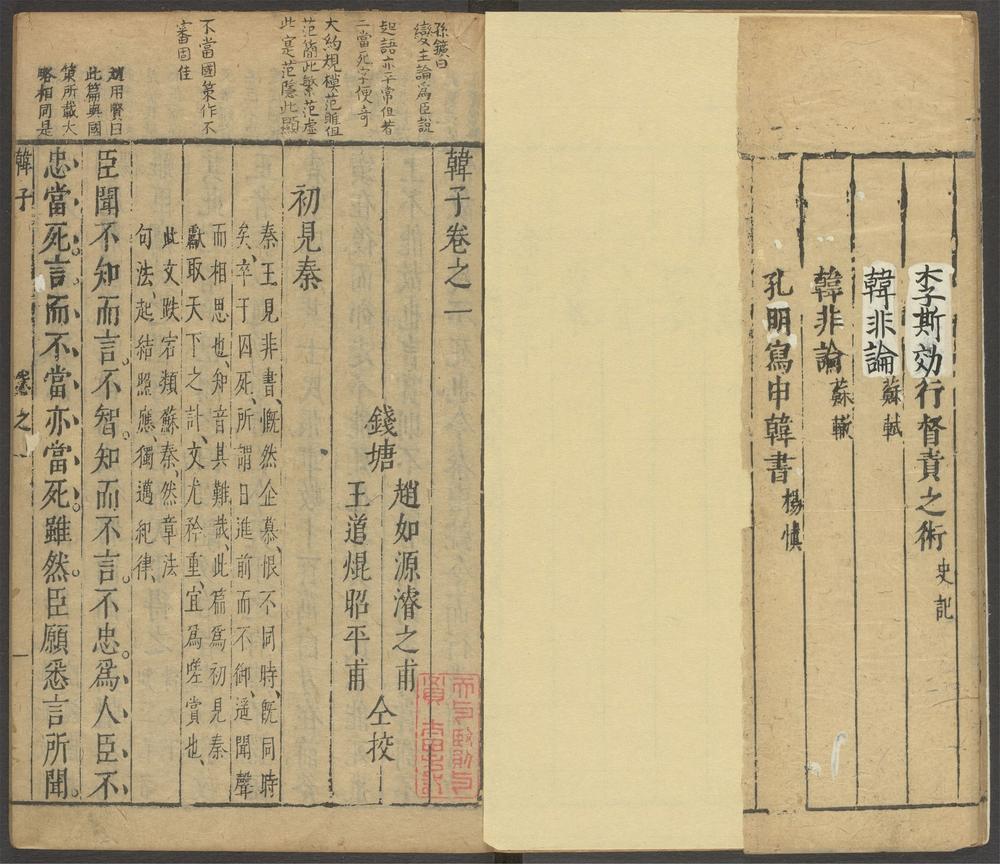 李斯効行督責之術 史記
韓非論 蘇軾
韓非論 蘇轍
孔明寫申韓書 楊慎
孫鑛曰
變主論爲臣說
起語亦平常但著
二當死字便奇
大約規模范雎但
范簡此繁范虛
此寔范隱此顯
不當國策作不
審固佳
趙用賢曰
此篇與國
策所載大
略相同是
韓子卷之一
趙如源濬之甫
錢塘
仝挍
王道焜昭平甫
初見秦
秦王見非書、慨然企慕、恨不同時、旣同時
矣、卒于囚死、所謂日進前而不御、遥聞聲
而相思也、知音其難哉、此篇爲初見秦
獻取天下之計、文尤矜重、宜爲嗟賞也、
此文跌宕類蘇秦、然章法
句法起結照應、獨邁紀律、
臣聞不知而言。不智。知而不言。不忠。爲人臣不
忠當死。言而不當亦當死。雖然臣願悉言所聞。
韓子
卷之一
一